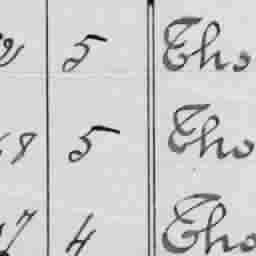 5 Tho
8 5 Tho
7 4 Tho